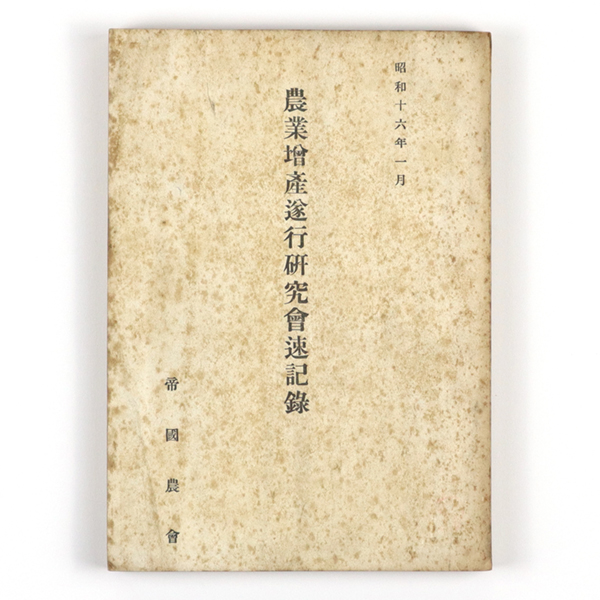 昭和十六年一月
農業增產遂行硏究會速記錄
帝國農會